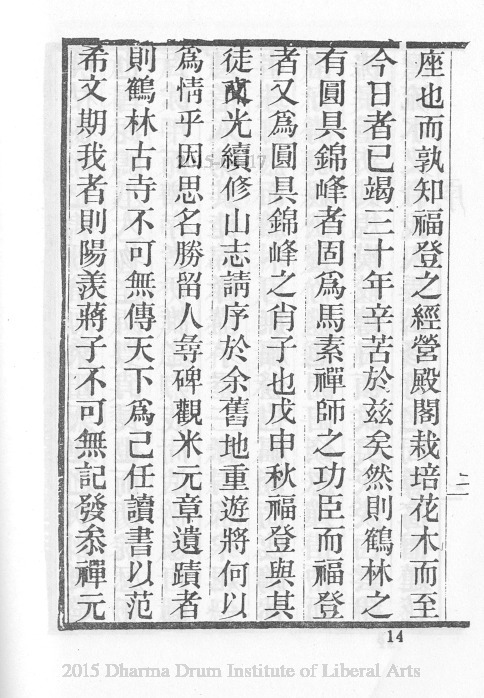 座也而孰知福登之經營殿閣栽培花木而至
今日者已竭三十年辛苦於兹矣然則鶴林之
有圓具錦峰者固爲馬素禪師之功臣而福登
者又爲圓具錦峰之肖子也戊申秋福登與其
徒 光續修山志請序於余舊地重遊將何以
爲情乎因思名勝留人彝碑觀米元章遺蹟者
則鶴林古寺不可無傳天下爲己任讀書以范
希文期我者則陽羨蔣子不可無記發叅禪元
二
14
2015 Dharma Drum Institute of Liberal Arts